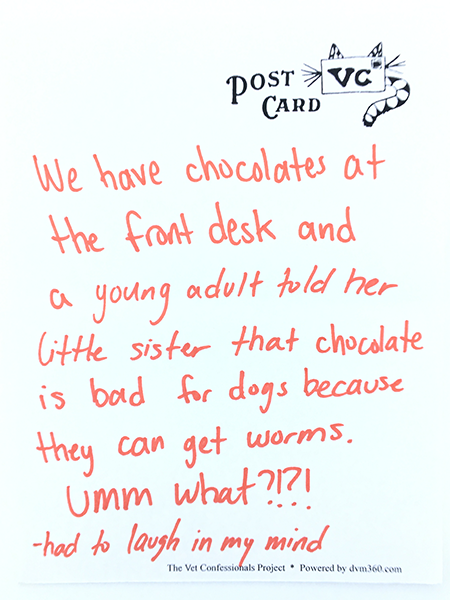 POST
CARD
VC
We have chocolates at
the front desk and
a young adult told her
little sister that chocolate
is bad for dogs because
they can get worms.
Umm what?!?!
-had to laugh in my mind
The Vet Confessionals Project * Powered by dvm360.com